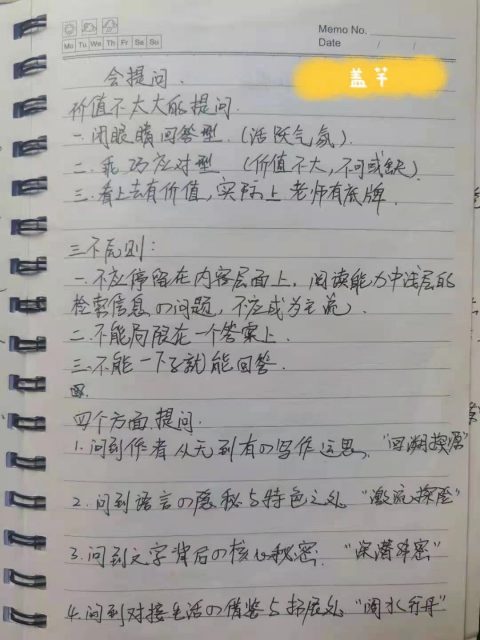 Memo No.
Mo Tu We Th Fr Sa Su
Date / /
盖芊
会提问.
价值不大大的提问.
一.闭眼睛回答型.(活跃气氛).
二.乖巧应对型 (价值不大,不可或缺)
三.看上去有价值,实际上老师有底牌.
三不原则:
一.不应停留在内容层面上,阅读能力中浅层的
检索信息の问题,不应成为主流).
二.不能局限在一个答案上.
三.不能一下子就能回答.
四个方面提问.
1.问到作者从无到有の写作运思、"回溯探源"
2.问到语言の隐秘与特色之处 "激流探险"
3.问到文字背后の核心秘密. "深潜弄密"
4.问到对接生活の借鉴与拓展处 "调水行舟"